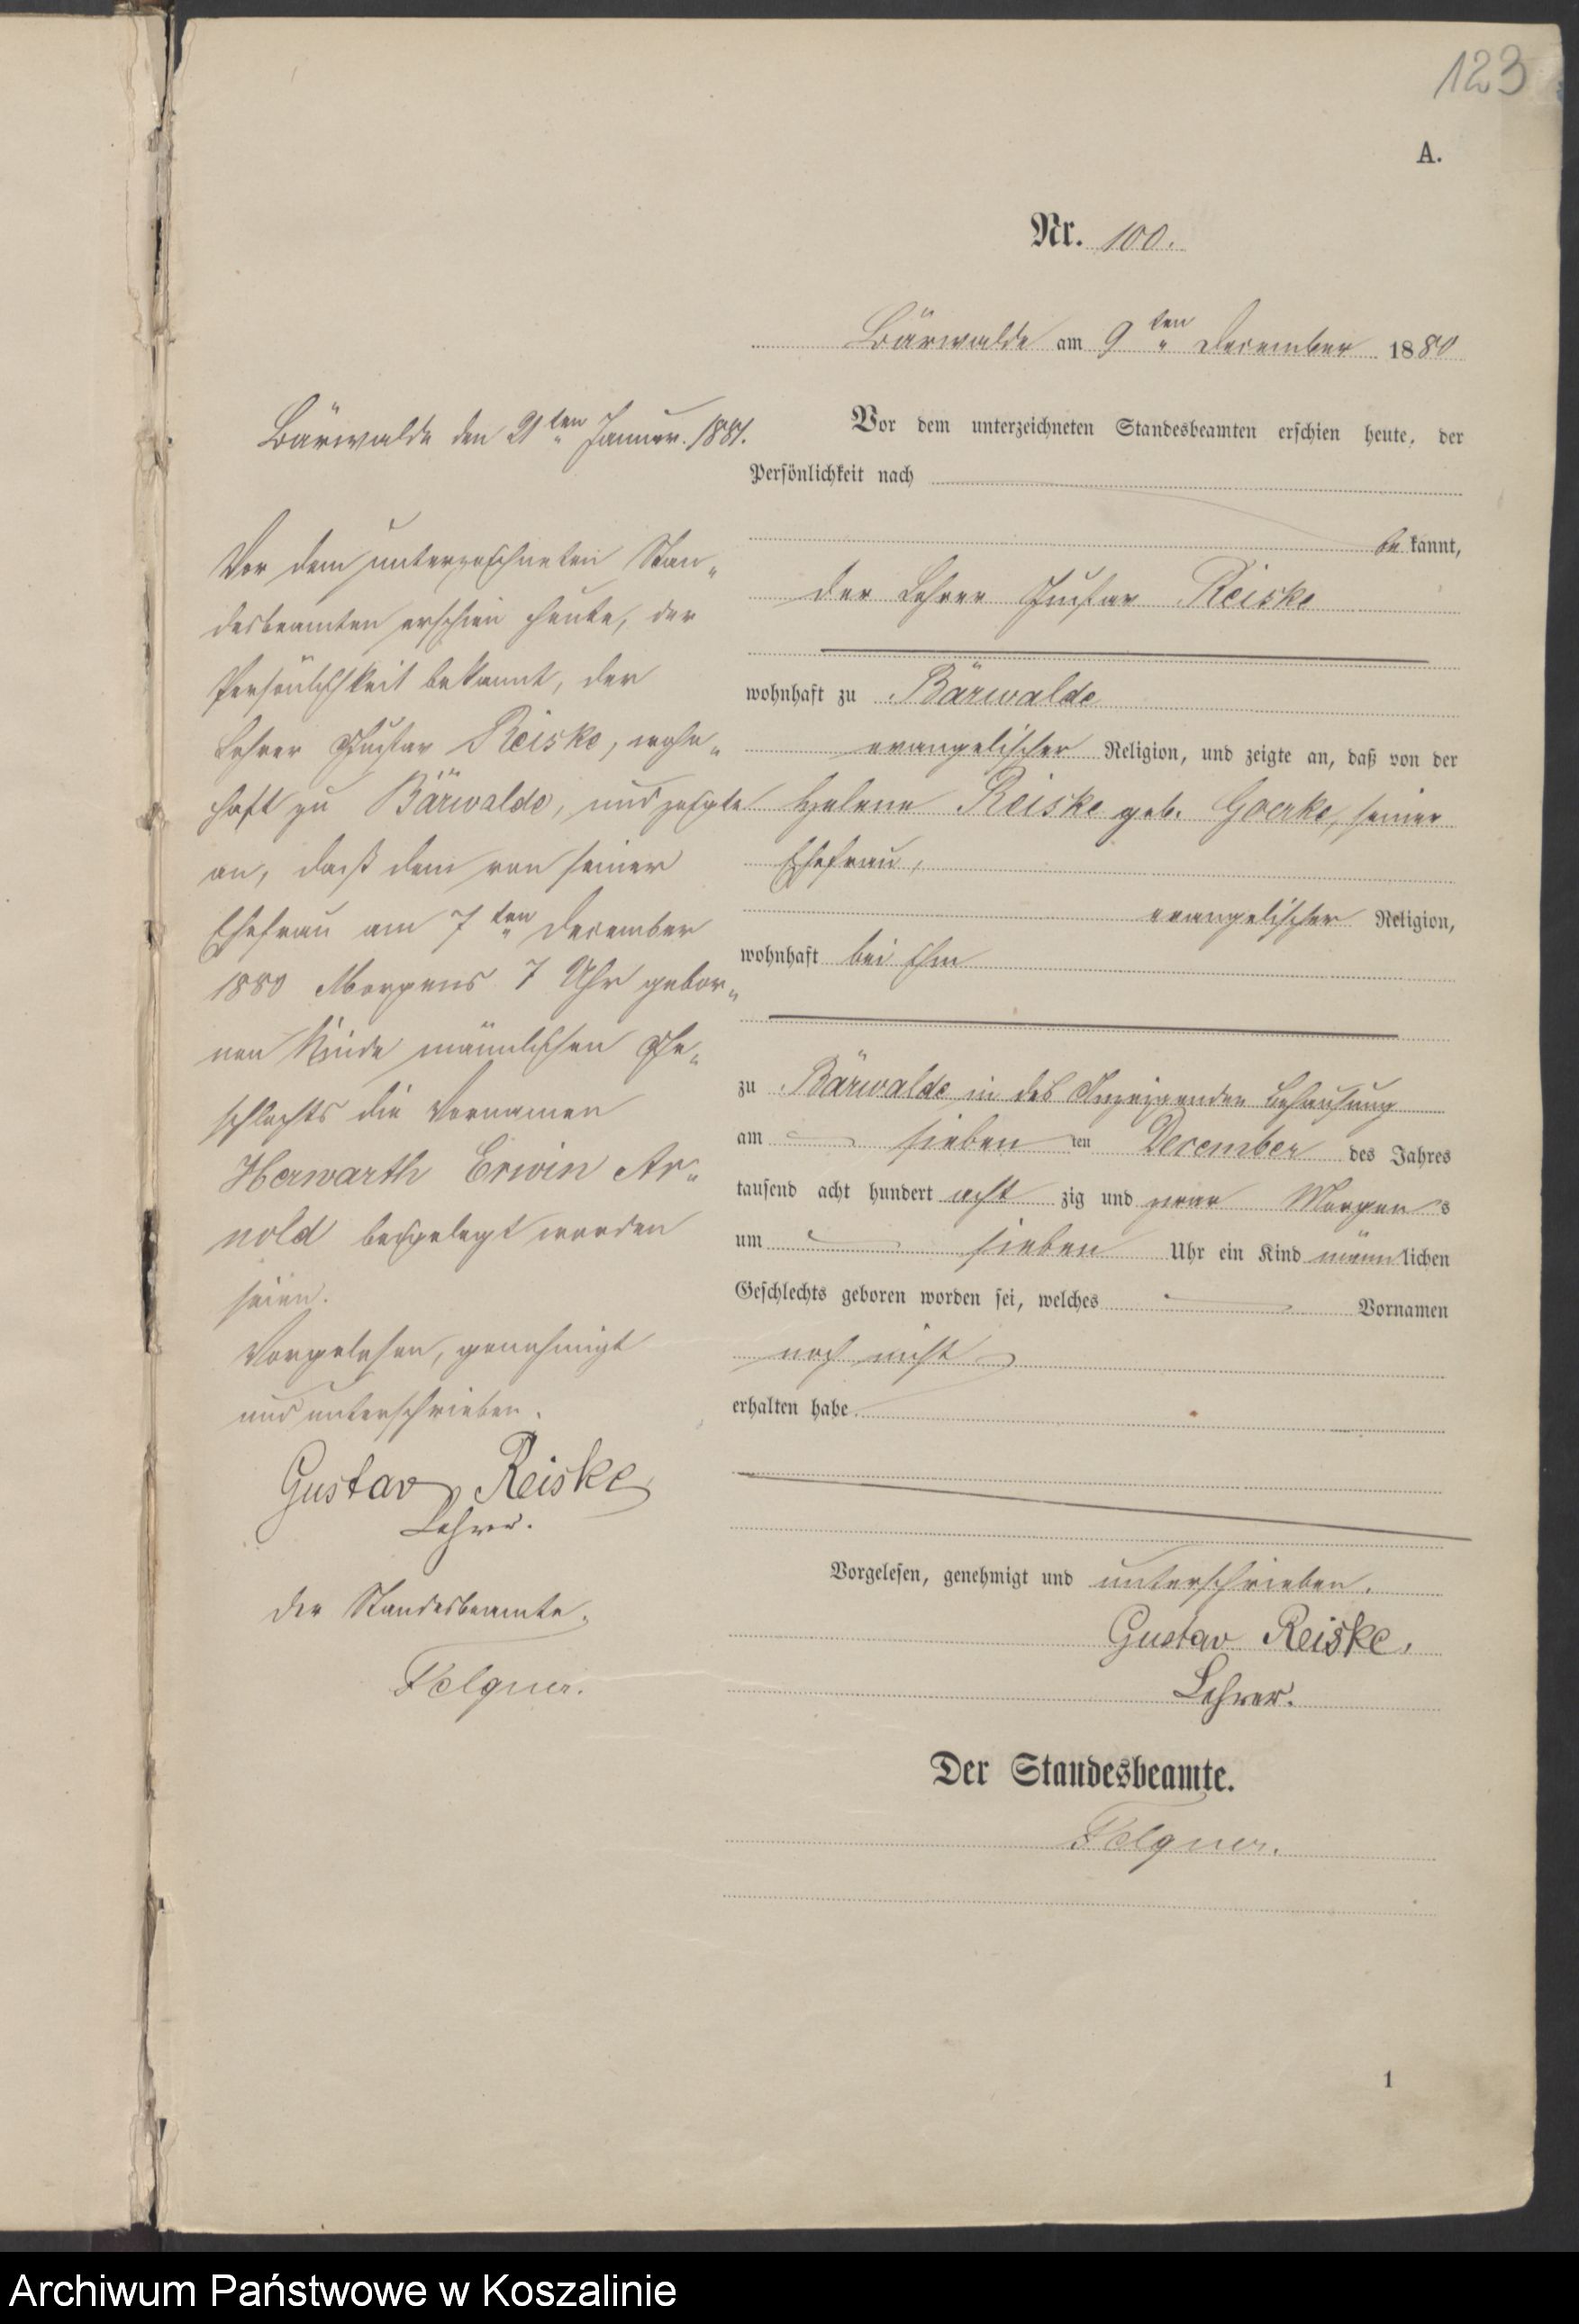 123
A.
Nr. 100.
Bärwalde am 9ten December 1880
Vor dem unterzeichneten Standesbeamten erschien heute, der
Persönlichkeit nach
bekannt,
der Lehrer Gustav Reiske
wohnhaft zu Bärwalde
evangelischer Religion, und zeigte an, daß von der
Helene Reiske geb. Goerke, seiner
Ehefrau,
evangelischer Religion,
wohnhaft bei ihm
zu Bärwalde in des Anzeigenden Behausung
am sieben ten December des Jahres
tausend acht hundert acht zig und zwar Morgens
um sieben Uhr ein Kind männlichen
Geschlechts geboren worden sei, welches Vornamen
noch nicht
erhalten habe.
Vorgelesen, genehmigt und unterschrieben.
Gustav Reiske.
Lehrer.
Der Standesbeamte.
Felgner.
1
Bärwalde den 21ten Januar. 1881.
Vor dem unterzeichneten Stan-
desbeamten erschien heute, der
Persönlichkeit bekannt, der
Lehrer Gustav Reiske, wohn-
haft zu Bärwalde, und zeigte
an, daß dem von seiner
Ehefrau am 7ten December
1880 Morgens 7 Uhr gebor-
nen Kinde männlichen Ge-
schlechts die Vornamen
Herwarth Erwin Ar-
nold beigelegt worden
seien.
Vorgelesen, genehmigt
und unterschrieben.
Gustav Reiske
Lehrer.
Der Standesbeamte.
Felgner.
Archiwum Państwowe w Koszalinie